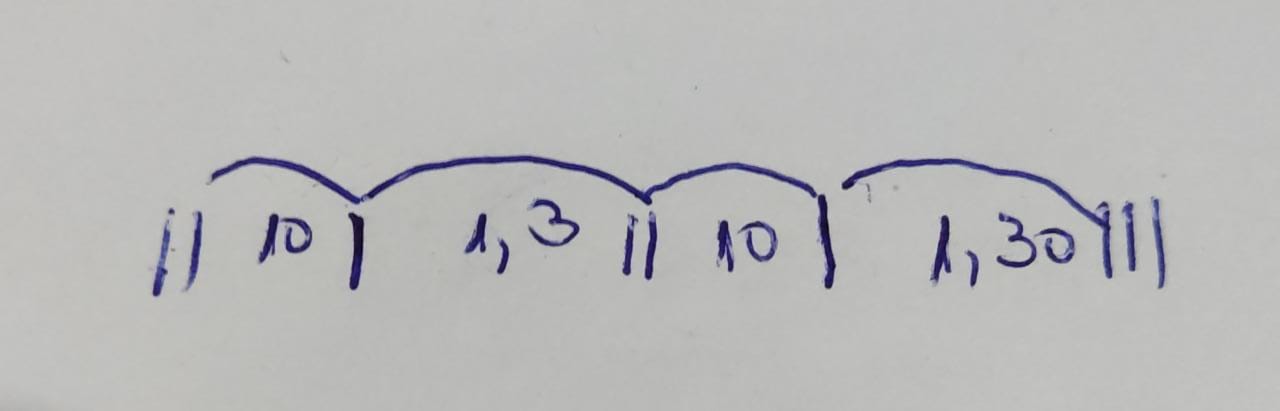 || 10 | 1,3 || 10 | 1,30 |||